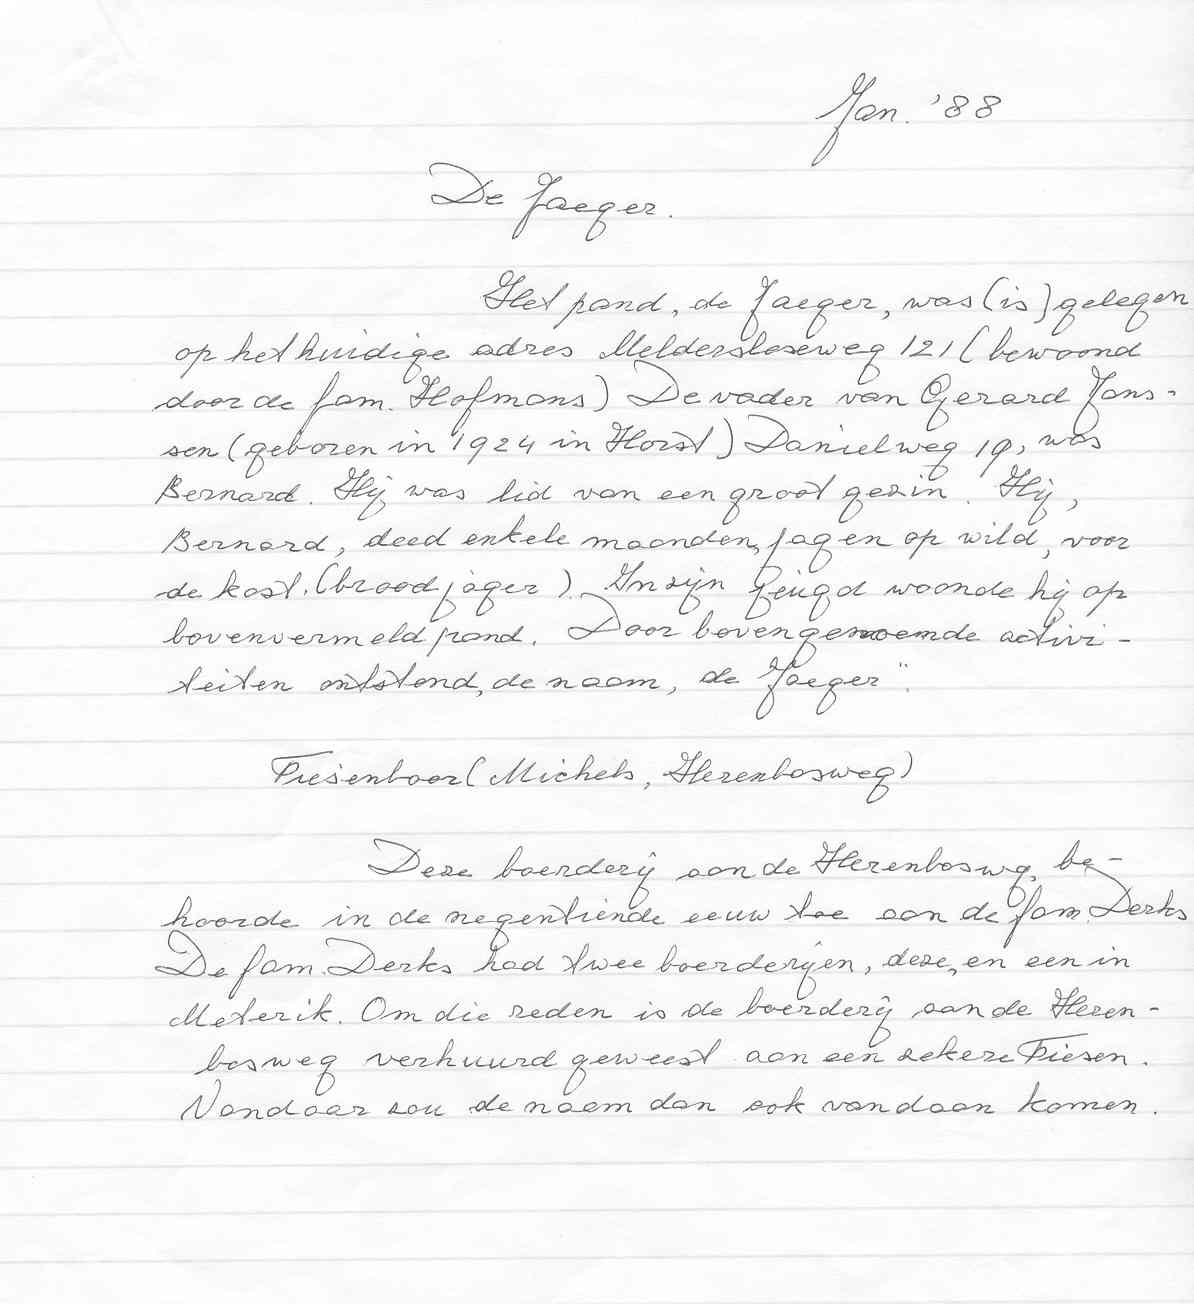 Jan. '88
De Jaeger.
Het pand, de Jaeger, was (is) gelegen
op het huidige adres Meldersloseweg 121 (bewoond
door de fam. Hofmans) De vader van Gerard Jans-
sen (geboren in 1924 in Horst) Danielweg 19, was
Bernard. Hij was lid van een groot gezin. Hij,
Bernard, deed enkele maanden, jagen op wild, voor
de kost. (broodjager). In zijn jeugd woonde hij op
bovenvermeld pand. Door bovengenoemde activi-
teiten ontstond, de naam, de Jaeger".
Friesenboer (Michels, Herenbosweg)
Deze boerderij aan de Herenboswg, be-
hoorde in de negentiende eeuw toe aan de fam. Derks
De fam. Derks had twee boerderijen, deze, en een in
Meterik. Om die reden is de boerderij aan de Heren-
bosweg verhuurd geweest aan een zekere Friesen.
Vandaar zou de naam dan ook vandaan komen.